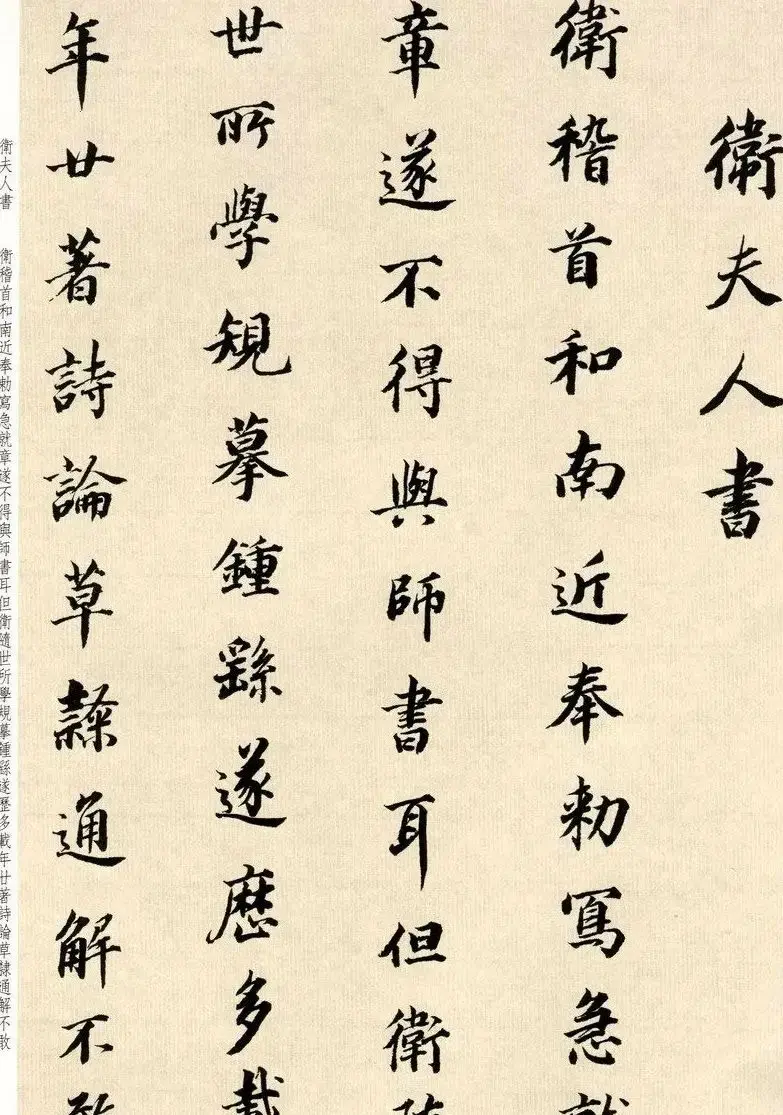 衛夫人書
衛稽首和南近奉勅寫急就
章遂不得與師書耳但衛隨
世所學規摹鍾繇遂歷多載
年廿著詩論草隸通解不敢
衛夫人書　衛稽首和南近奉勅寫急就章遂不得與師書耳但衛隨世所學規摹鍾繇遂歷多載年廿著詩論草隸通解不敢